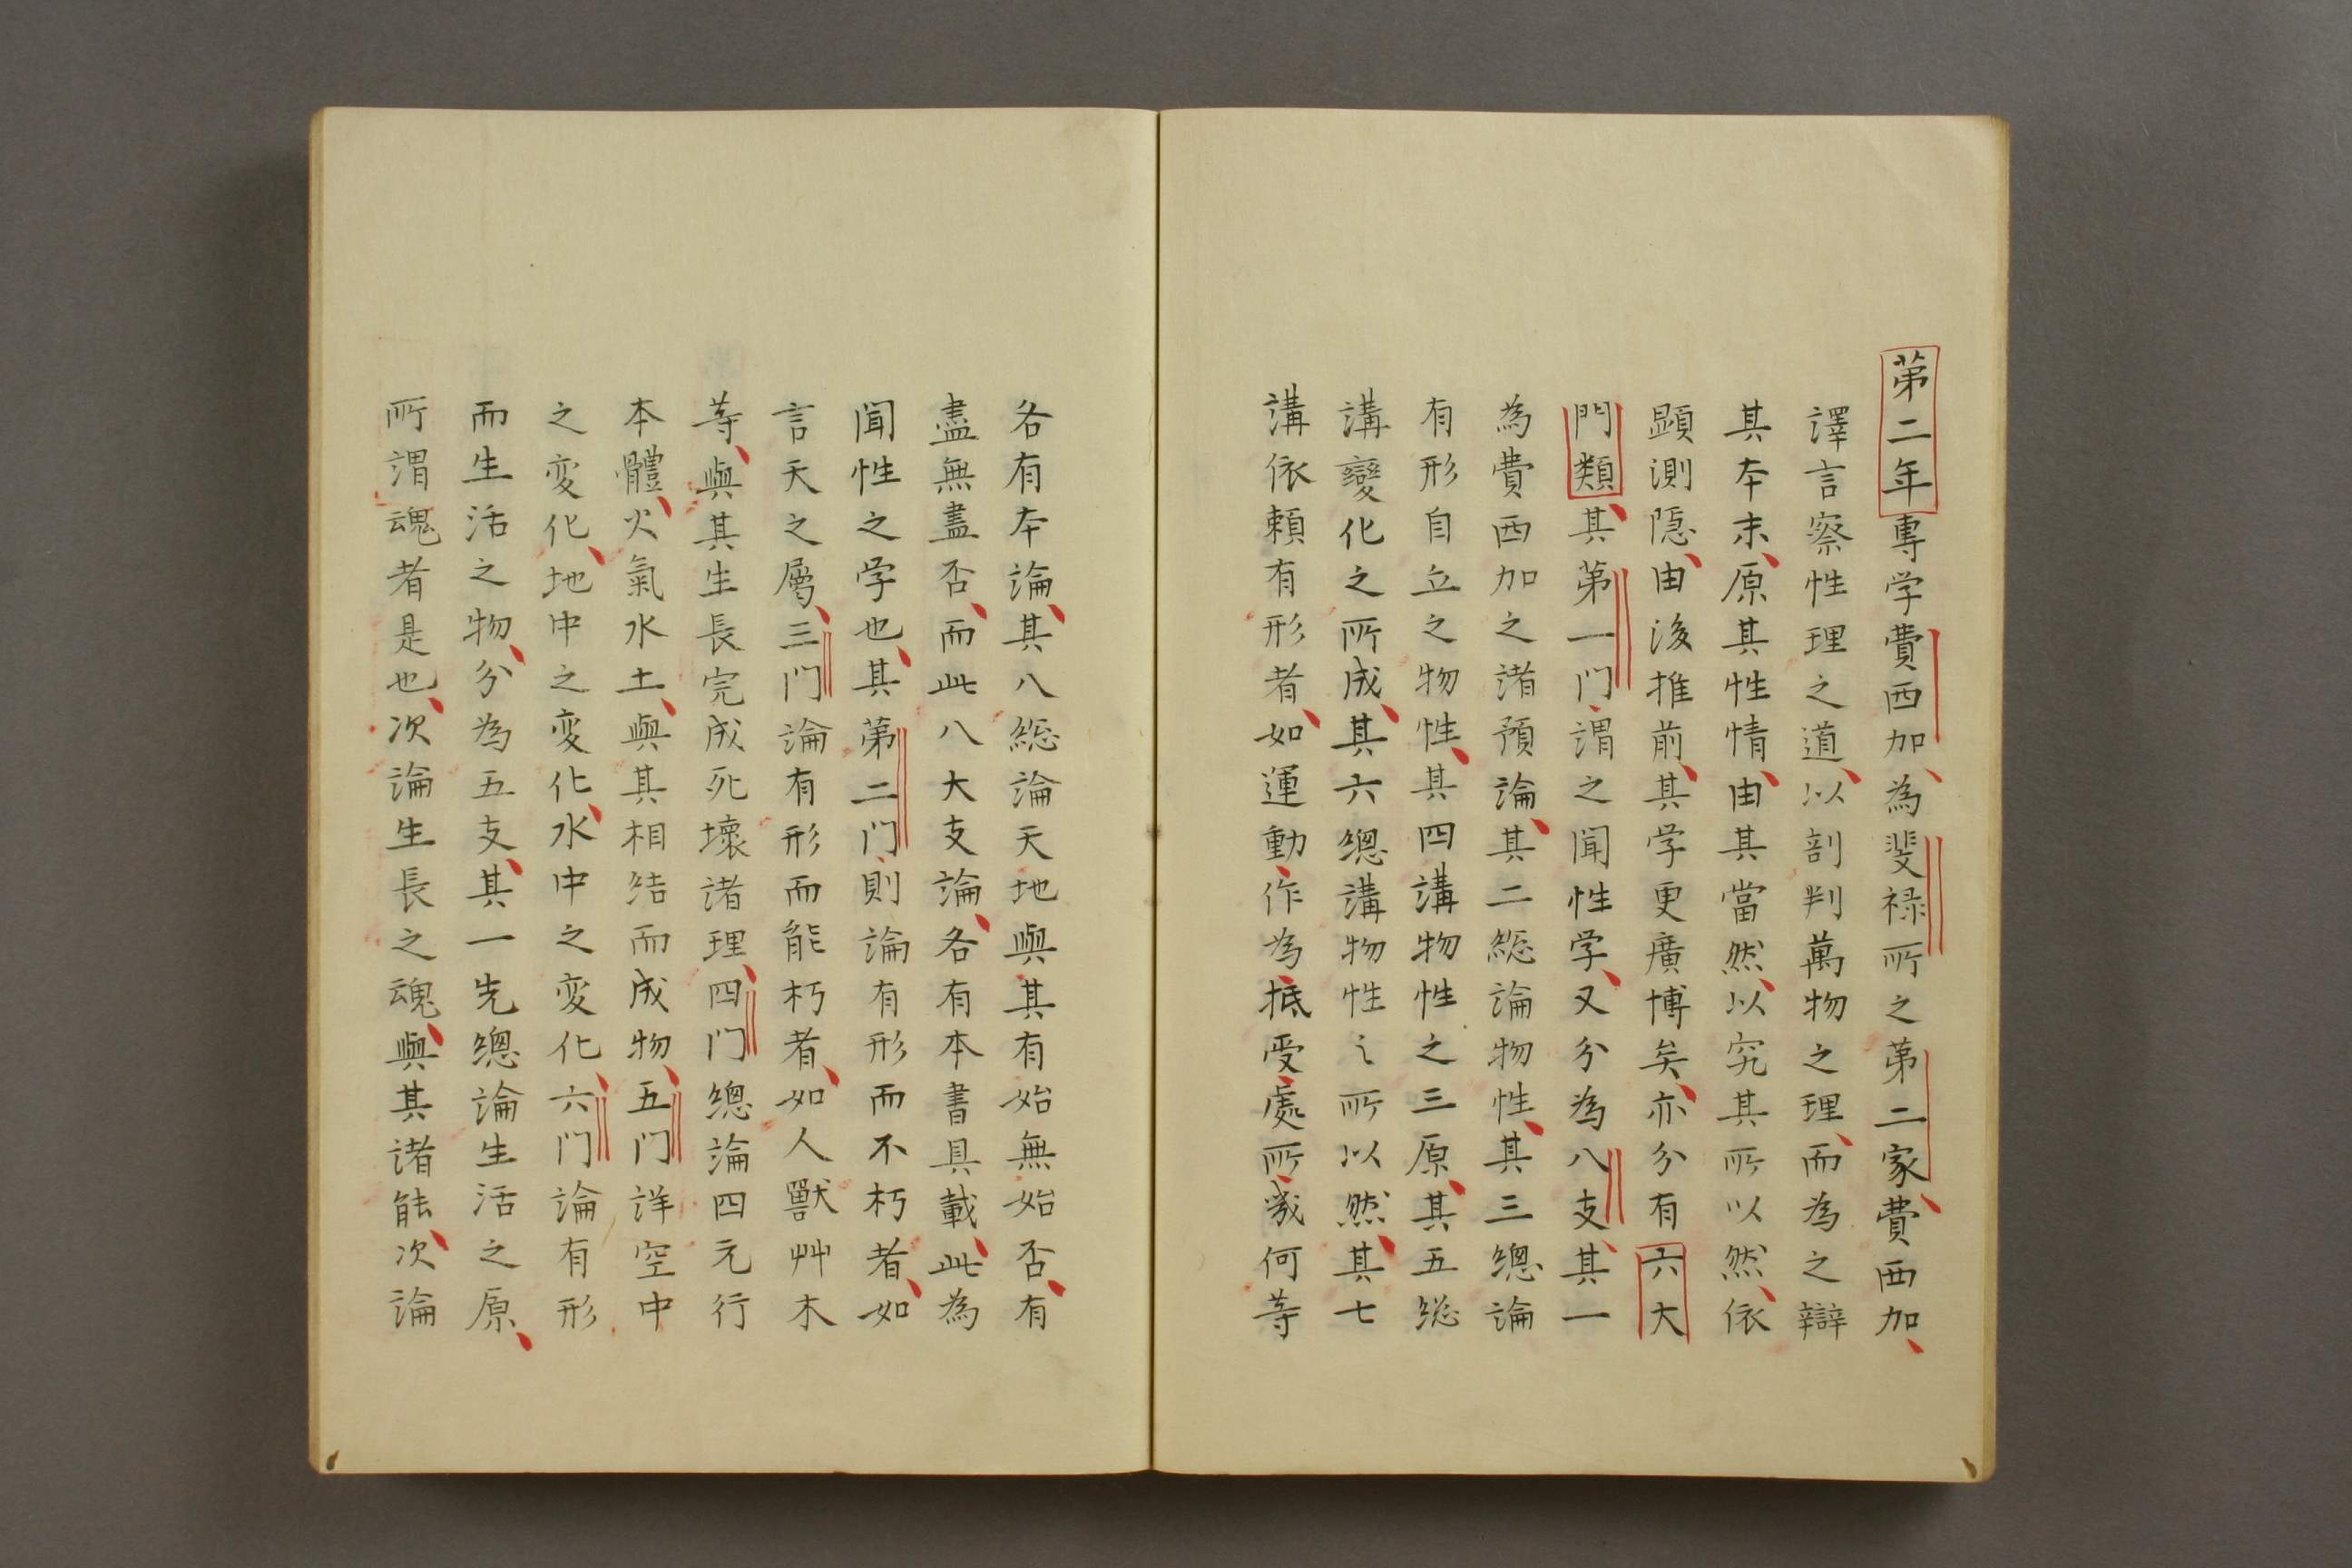 第二年專学費西加、為斐禄所之第二家、費西加、
譯言察性理之道、以剖判萬物之理、而為之辯
其本末、原其性情、由其當然、以究其所以然、依
顯測隠、由後推前、其学更廣博矣、亦分有六大
門類、其第一门、謂之聞性学、又分為八支、其一
為費西加之諸預論、其二総論物性、其三總論
有形自立之物性、其四講物性之三原、其五総
講變化之所成、其六總講物性之所以然、其七
講依賴有形者、如運動、作為、抵受、處所、幾何等
各有本論、其八総論天地與其有始無始否、有
盡無盡否、而此八大支論、各有本書具載、此為
聞性之学也、其第二门、則論有形而不朽者、如
言天之屬、三门論有形而能朽者、如人獸艸木
等、與其生長完成死壞諸理、四门總論四元行
本體、火氣水土、與其相结而成物、五门詳空中
之変化、地中之変化、水中之変化、六门論有形
而生活之物、分為五支、其一先總論生活之原、
所謂魂者是也、次論生長之魂、與其諸能、次論